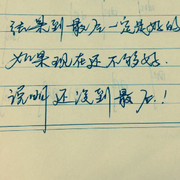 结果到最后一定是好的
如果现在还不够好.
说明还没到最后!